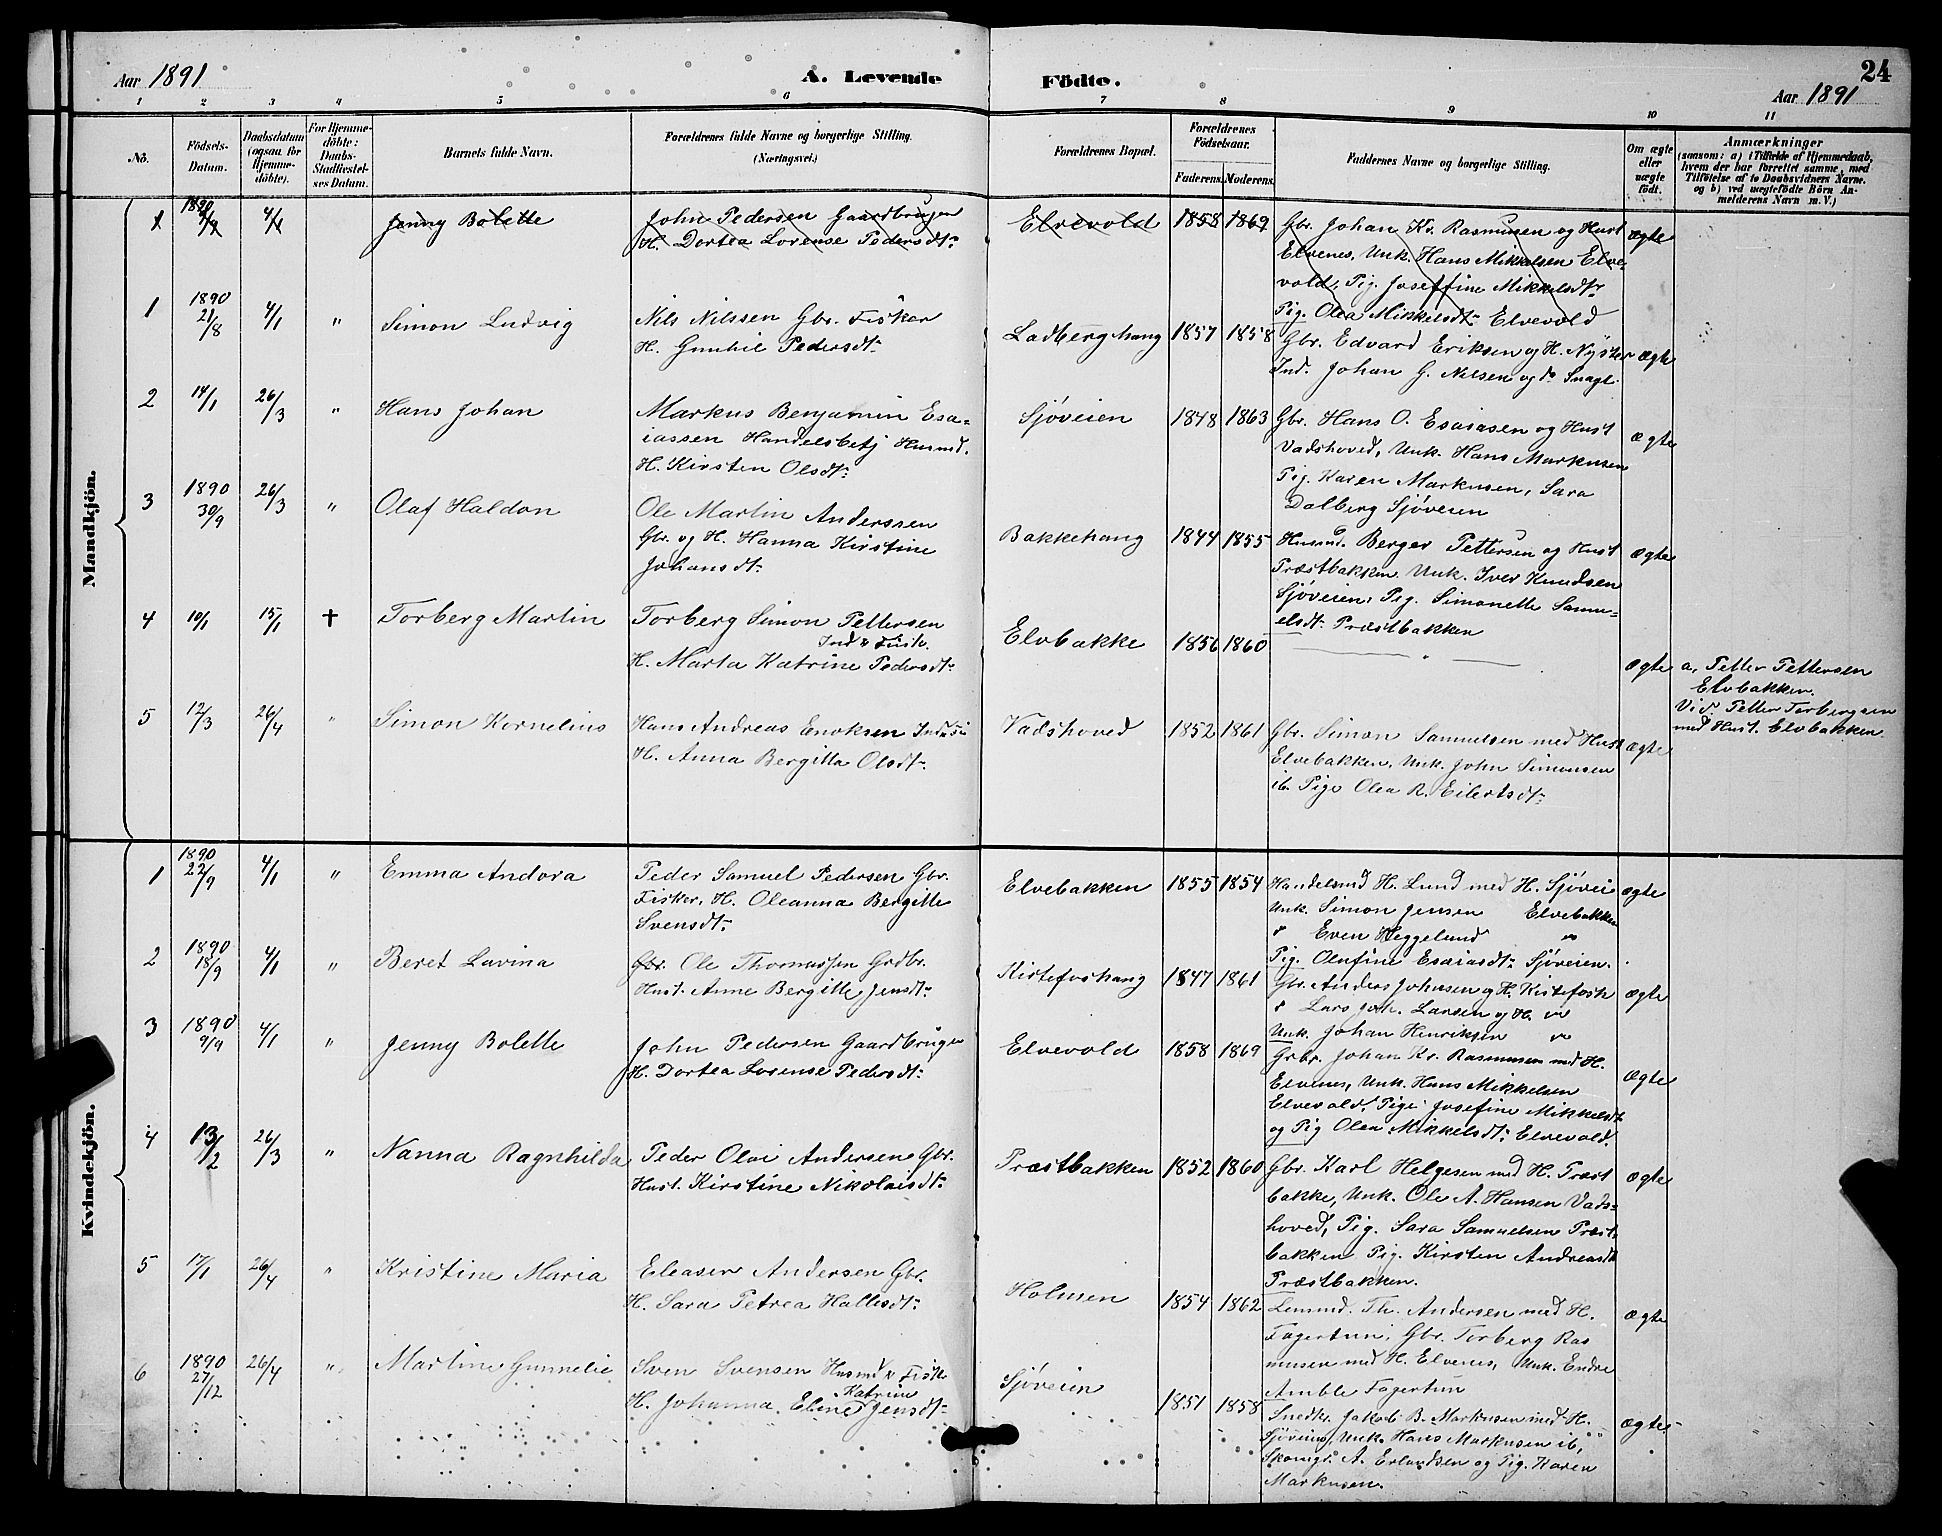 Aar 1891
A. Levende Födte.
24
Aar 1891
1 2 3 4 5 6 7 8 9 10 11
No.
Födsels-
Datum.
Daabsdatum
(ogsaa for
Hjemme-
döbte).
For Hjemme-
döbte:
Daabs-
Stadfæstel-
ses Datum.
Barnets fulde Navn.
Forældrenes fulde Navne og borgerlige Stilling.
(Næringsvei.)
Forældrenes Bopæl.
Forældrenes
Födselsaar.
Faderens. Moderens.
Faddernes Navne og borgerlige Stilling.
Om ægte
eller
uægte
födt.
Anmærkninger
(saasom: a) i Tilfælde af Hjemmedaab,
hvem der har forrettet samme, med
Tilföielse af to Daabsvidners Navne.
og b) ved uægtefödte Börn An-
melderens Navn m. V.)
Mandkjön.
1 1890 9/9 4/1 Jenny Bolette
John Pedersen Gaardbruger
H. Dortea Lorense Pedersdtr
Elvevold 1858 1869
Gbr. Johan Kr. Rasmusen og Hust
Elvenes, Unk. Hans Mikkelsen Elve-
vold, Pig. Joseffine Mikkelsdtr
Pig. Olea Mikkelsdtr Elvevold
ægte
1 1890 21/8 4/1 " Simon Ludvig
Nils Nilssen Gbr. Fisker
H. Gunhil Pedersdtr
Ladberghang 1857 1858
Gbr. Edvard Eriksen og H.
Ind. Johan G. Nilsen og do
ægte
2 14/1 26/3 " Hans Johan
Markus Benjamin Esa-
iassen Handelsbetj Husmd.
H. Kirsten Olsdtr
Sjøveien 1848 1863
Gbr. Hans O. Esaiasen og Hust
Vadshoved, Unk. Hans Markusen
Pig. Karen Markusen, Sara
Dalberg Sjøveien
ægte
3 1890 30/9 26/3 " Olaf Haldon
Ole Martin Anderssen
Gbr. og H. Hanna Kirstine
Johansdtr
Bakkehang 1844 1855
Husmd. Berger Pettersen og Hust
Præstbakken. Unk. Iver Knudsen
Sjøveien, Pig. Simonette Samu-
elsdtr Præstbakken
ægte
4 10/1 15/1 † Torberg Martin
Torberg Simon Pettersen
Ind & Fisk.
H. Marta Katrine Pedersdtr
Elvbakke 1856 1860
— " —
ægte
a, Petter Pettersen
Elvbakken.
Vid. Petter Torbergsen
med Hust. Elvbakken.
5 12/3 26/4 " Simon Kornelius
Hans Andreas Enoksen Ind & Fi
H. Anna Bergitta Olsdtr
Vadshoved 1852 1861
Gbr. Simon Samuelsen med Hust
Elvebakken, Unk. John Simonsen
ib. Pige Olea R. Eilertsdtr
ægte
Kvindekjön.
1 1890 22/9 4/1 " Emma Andora
Peder Samuel Pedersen Gbr.
Fisker, H. Oleanna Bergitte
Svensdtr
Elvebakken 1855 1854
Handelsmd H. Lund med H. Sjövei
Unk. Simon Jensen Elvebakken
" Even Heggelund "
Pig. Olufine Esaiasdtr Sjøveien.
ægte
2 1890 18/9 4/1 " Beret Lavina
Gbr. Ole Thomassen Grdbr.
Hust. Anne Bergitte Jensdtr
Kistefoshang 1847 1861
Gbr. Anders Johnsen og H. Kistefosh
" Lars Joh. Larsen og H. "
Unk. Johan Henriksen "
ægte
3 1890 9/9 4/1 " Jenny Bolette
John Pedersen Gaardbruger
H. Dortea Lorense Pedersdtr
Elvevold 1858 1869
Grbr. Johan Kr. Rasmusen med H.
Elvenes, Unk. Hans Mikkelsen
Elvevold, Pige Josefine Mikkelsdt
og Pig Olea Mikkelsdtr Elvevold.
ægte
4 13/2 26/3 " Nanna Ragnhilda
Peder Olai Andersen Gbr.
Hust. Kirstine Nikolaisdtr
Præstbakken 1852 1860
Gbr. Karl Helgesen med H. Præst
bakke, Unk. Ole A. Hansen Vads-
hoved, Pig. Sara Samuelsen Præst
bakken Pig. Kirsten Andreasdt
Præstbakken.
ægte
5 17/1 26/4 " Kristine Maria
Eleaser Andersen Gbr.
H. Sara Petrea Hallesdtr
Holmen 1854 1862
Lensmd. Th. Andersen med H.
Fagertun, Gbr. Torberg Ras
musen med H. Elvenes, Unk. Endre
Amble Fagertun
ægte
6 1890 27/12 26/4 " Martine Gunnelie
Sven Svensen Husmd & Fisk
Katrine
H. Johanna Eline Jensdtr
Sjøveien 1851 1858
Snedkr. Jakob B. Markusen med H.
Sjøveien, Unk. Hans Markusen ib,
Skomgr. A. Erlandsen og Pig. Karen
Markusen.
ægte